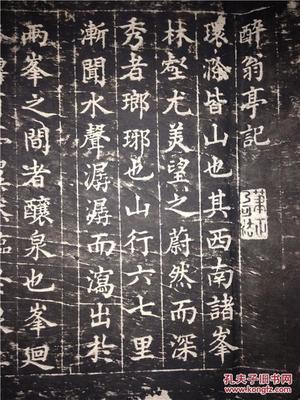 醉翁亭記
環滁皆山也其西南諸峯
林壑尤美望之蔚然而深
秀者瑯琊也山行六七里
漸聞水聲潺潺而瀉出於
兩峯之間者釀泉也峯迴
孔夫子旧书网